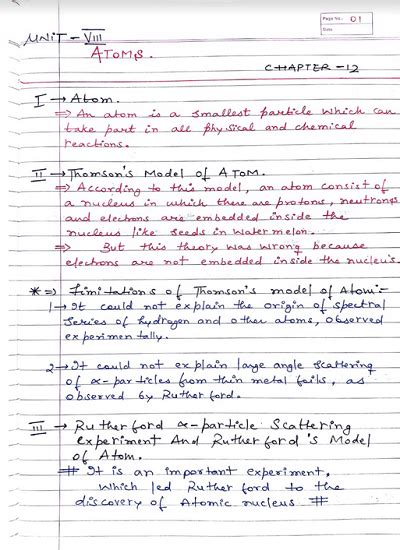 Page No.: 01
Date
UNIT - VIII
ATOMS.
CHAPTER - 12
I → Atom.
⇒ An atom is a smallest particle which can
take part in all physical and chemical
reactions.
II → Thomson's Model of ATOM.
⇒ According to this model, an atom consist of
a nucleus in which there are protons, neutrons
and electrons are embedded inside the
nucleus like seeds in watermelon.
⇒ But this theory was wrong because
electrons are not embedded inside the nucleus.
* ⇒ Limitations of Thomson's model of Atom:-
1 → It could not explain the origin of spectral
series of hydrogen and other atoms, observed
experimentally.
2 → It could not explain large angle scattering
of α-particles from thin metal foils, as
observed by Rutherford.
III → Rutherford α-particle Scattering
experiment And Rutherford's Model
of Atom.
# It is an important experiment,
which led Rutherford to the
discovery of Atomic nucleus #